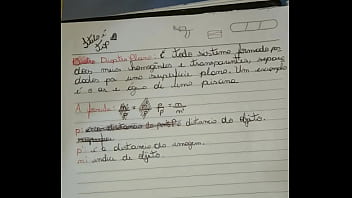 Ítalo é
Top
Dioptro Plano: é todo sistema formado por
dois meios homogêneos e transparentes, separa
dados por uma superfície plana. Um exemplo
é o ar e água de uma piscina.
A fórmula:
p: é distância do objeto.
p': é a distância da imagem.
n: índice de objeto.